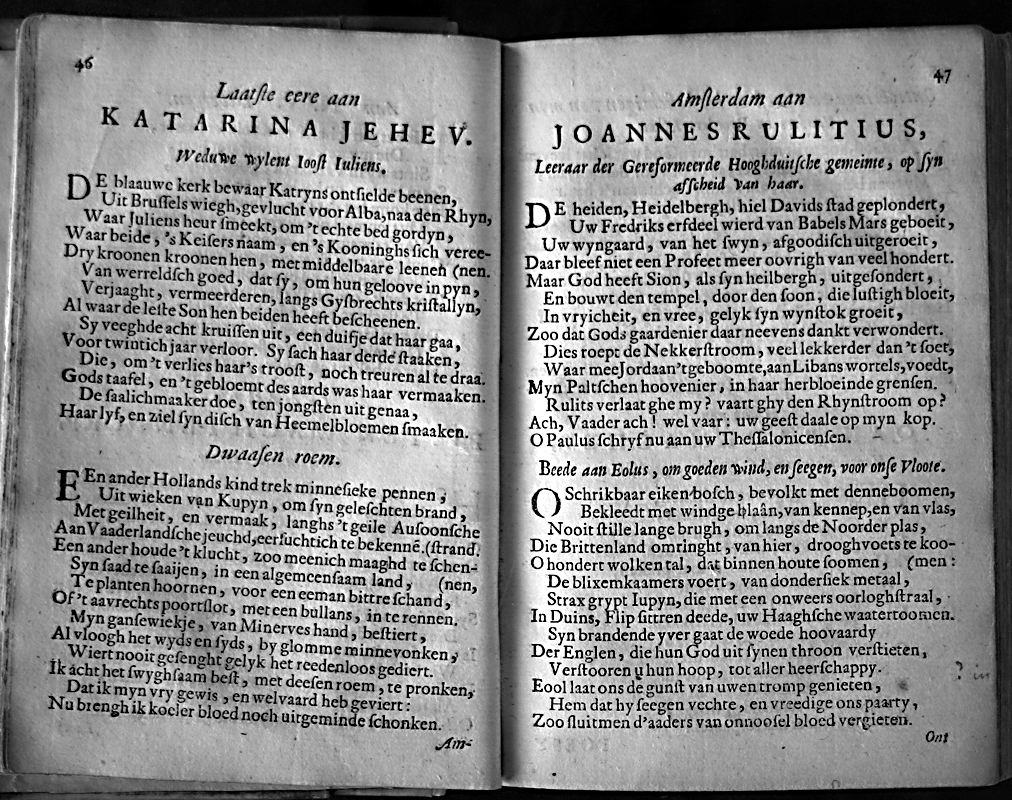 46
Laatſte eere aan
KATARINA JEHEV.
Weduwe wylent Iooſt Iuliens.
DE blaauwe kerk bewaar Katryns ontſielde beenen,
Uit Bruſſels wiegh, gevlucht voor Alba, naa den Rhyn,
Waar Juliens heur ſmeekt, om 't echte bed gordyn,
Waar beide, 's Keiſers naam, en 's Kooninghs ſich veree-
Dry kroonen kroonen hen, met middelbaare leenen (nen.
Van werreldſch goed, dat ſy, om hun geloove in pyn,
Verjaaght, vermeerderen, langs Gyſbrechts kriſtallyn,
Al waar de leſte Son hen beiden heeft beſcheenen.
Sy veeghde acht kruiſſen uit, een duifje dat haar gaa,
Voor twintich jaar verloor. Sy ſach haar derde ſtaaken,
Die, om 't verlies haar's trooſt, noch treuren al te draa.
Gods taafel, en 't gebloemt des aards was haar vermaaken.
De ſaalichmaaker doe, ten jongſten uit genaa,
Haar lyf, en ziel ſyn diſch van Heemelbloemen ſmaaken.
Dwaaſen roem.
EEn ander Hollands kind trek minneſieke pennen,
Uit wieken van Kupyn, om ſyn geleſchten brand,
Met geilheit, en vermaak, langhs 't geile Auſoonſche
Aan Vaaderlandſche jeuchd, eerſuchtich te bekennē. (ſtrand.
Een ander houde 't klucht, zoo meenich maaghd te ſchen-
Syn ſaad te ſaaijen, in een algemeenſaam land, (nen,
Te planten hoornen, voor een eeman bittre ſchand,
Of 't aavrechts poortſlot, met een bullans, in te rennen.
Myn ganſewiekje, van Minerves hand, beſtiert,
Al vloogh het wyds en ſyds, by glomme minnevonken,
Wiert nooit geſenght gelyk het reedenloos gediert.
Ik acht het ſwyghſaam beſt, met deeſen roem, te pronken,
Dat ik myn vry gewis, en welvaard heb geviert:
Nu brengh ik koeler bloed noch uitgeminde ſchonken.
Am-
47
Amſterdam aan
JOANNES RULITIUS,
Leeraar der Gereformeerde Hooghduitſche gemeinte, op ſyn
afſcheid van haar.
DE heiden, Heidelbergh, hiel Davids ſtad geplondert,
Uw Fredriks erfdeel wierd van Babels Mars geboeit,
Uw wyngaard, van het ſwyn, afgoodiſch uitgeroeit,
Daar bleef niet een Profeet meer oovrigh van veel hondert.
Maar God heeft Sion, als ſyn heilbergh, uitgeſondert,
En bouwt den tempel, door den ſoon, die luſtigh bloeit,
In vryicheit, en vree, gelyk ſyn wynſtok groeit,
Zoo dat Gods gaardenier daar neevens dankt verwondert.
Dies roept de Nekkerſtroom, veel lekkerder dan 't ſoet,
Waar mee Jordaan 't geboomte, aan Libans wortels, voedt,
Myn Paltſchen hoovenier, in haar herbloeinde grenſen.
Rulits verlaat ghe my? vaart ghy den Rhynſtroom op?
Ach, Vaader ach! wel vaar: uw geeſt daale op myn kop.
O Paulus ſchryf nu aan uw Theſſalonicenſen.
Beede aan Eolus, om goeden wind, en ſeegen, voor onſe Vloote.
O Schrikbaar eikenboſch, bevolkt met denneboomen,
Bekleedt met windge blaân, van kennep, en van vlas,
Nooit ſtille lange brugh, om langs de Noorder plas,
Die Brittenland omringht, van hier, drooghvoets te koo-
O hondert wolken tal, dat binnen houte ſoomen, (men:
De blixemkaamers voert, van donderſiek metaal,
Strax grypt Iupyn, die met een onweers oorloghſtraal,
In Duins, Flip ſittren deede, uw Haaghſche waatertoomen.
Syn brandende yver gaat de woede hoovaardy
Der Englen, die hun God uit ſynen throon verſtieten,
Verſtooren u hun hoop, tot aller heerſchappy.
Eool laat ons de gunſt van uwen tromp genieten,
Hem dat hy ſeegen vechte, en vreedige ons paarty,
Zoo ſluitmen d'aaders van onnooſel bloed vergieten.
Ont